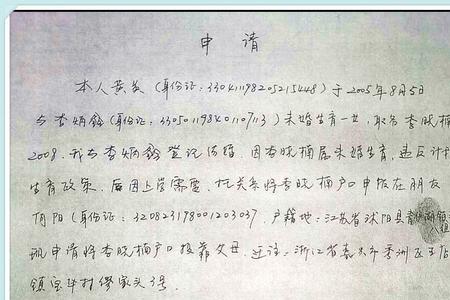 申请
本人黄敏（身份证：330411198205215448）于2005年8月5日
与李炳铃（身份证：330501198401107113）未婚生育一女，取名李晓楠
2008，我与李炳铃登记结婚。因李晓楠属未婚生育，违反计
生育政策。后因上学需要，托关系将李晓楠户口申报在朋友
（身份证：3208231978001203037。户籍地：江苏省沭阳县
现申请将李晓楠户口投靠父母。迁往：浙江省嘉兴市秀洲区王店
镇宝华村缪家头3号。